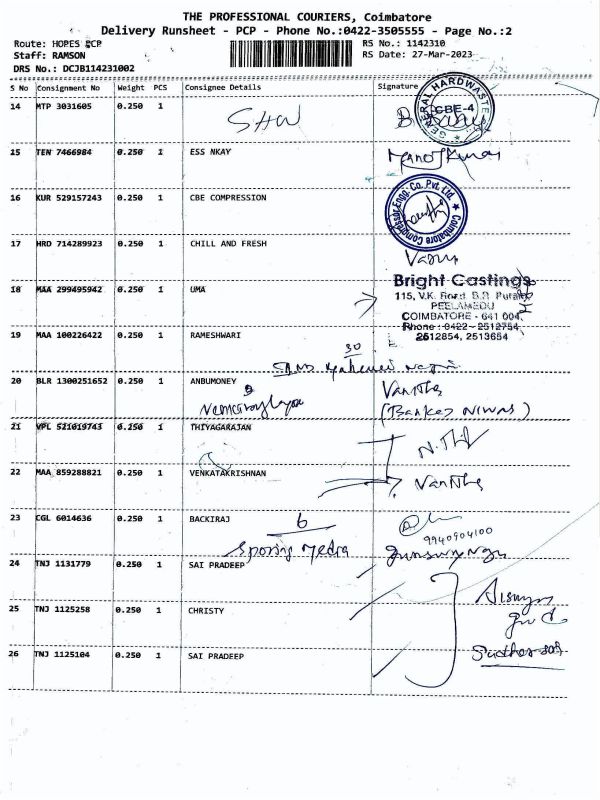 THE PROFESSIONAL COURIERS, Coimbatore
Delivery Runsheet - PCP - Phone No.:0422-3505555 - Page No.:2
Route: HOPES PCP
RS No.: 1142310
Staff: RAMSON
RS Date: 27-Mar-2023
DRS No.: DCJB114231002
S No Consignment No Weight PCS Consignee Details Signature
14 MTP 3031605 0.250 1 SHW
GENERAL HARDWASTE CBE-4
15 TEN 7466984 0.250 1 ESS NKAY Manojkumar
16 KUR 529157243 0.250 1 CBE COMPRESSION
Coimbatore Compressor Engg. Co. Pvt. Ltd.
17 HRD 714289923 0.250 1 CHILL AND FRESH
18 MAA 299495942 0.250 1 UMA
Bright Castings
115, V.K. Road, B.R. Puram
PEELAMEDU
COIMBATORE - 641 004.
Phone : 0422 - 2512754,
2512854, 2513654
19 MAA 100226422 0.250 1 RAMESHWARI
30
20 BLR 1300251652 0.250 1 ANBUMONEY Vanitha
21 VPL 521019743 0.250 1 THIYAGARAJAN
22 MAA 859288821 0.250 1 VENKATAKRISHNAN Vanitha
23 CGL 6014636 0.250 1 BACKIRAJ
6
9940904100
Media
24 TNJ 1131779 0.250 1 SAI PRADEEP
25 TNJ 1125258 0.250 1 CHRISTY
26 TNJ 1125104 0.250 1 SAI PRADEEP